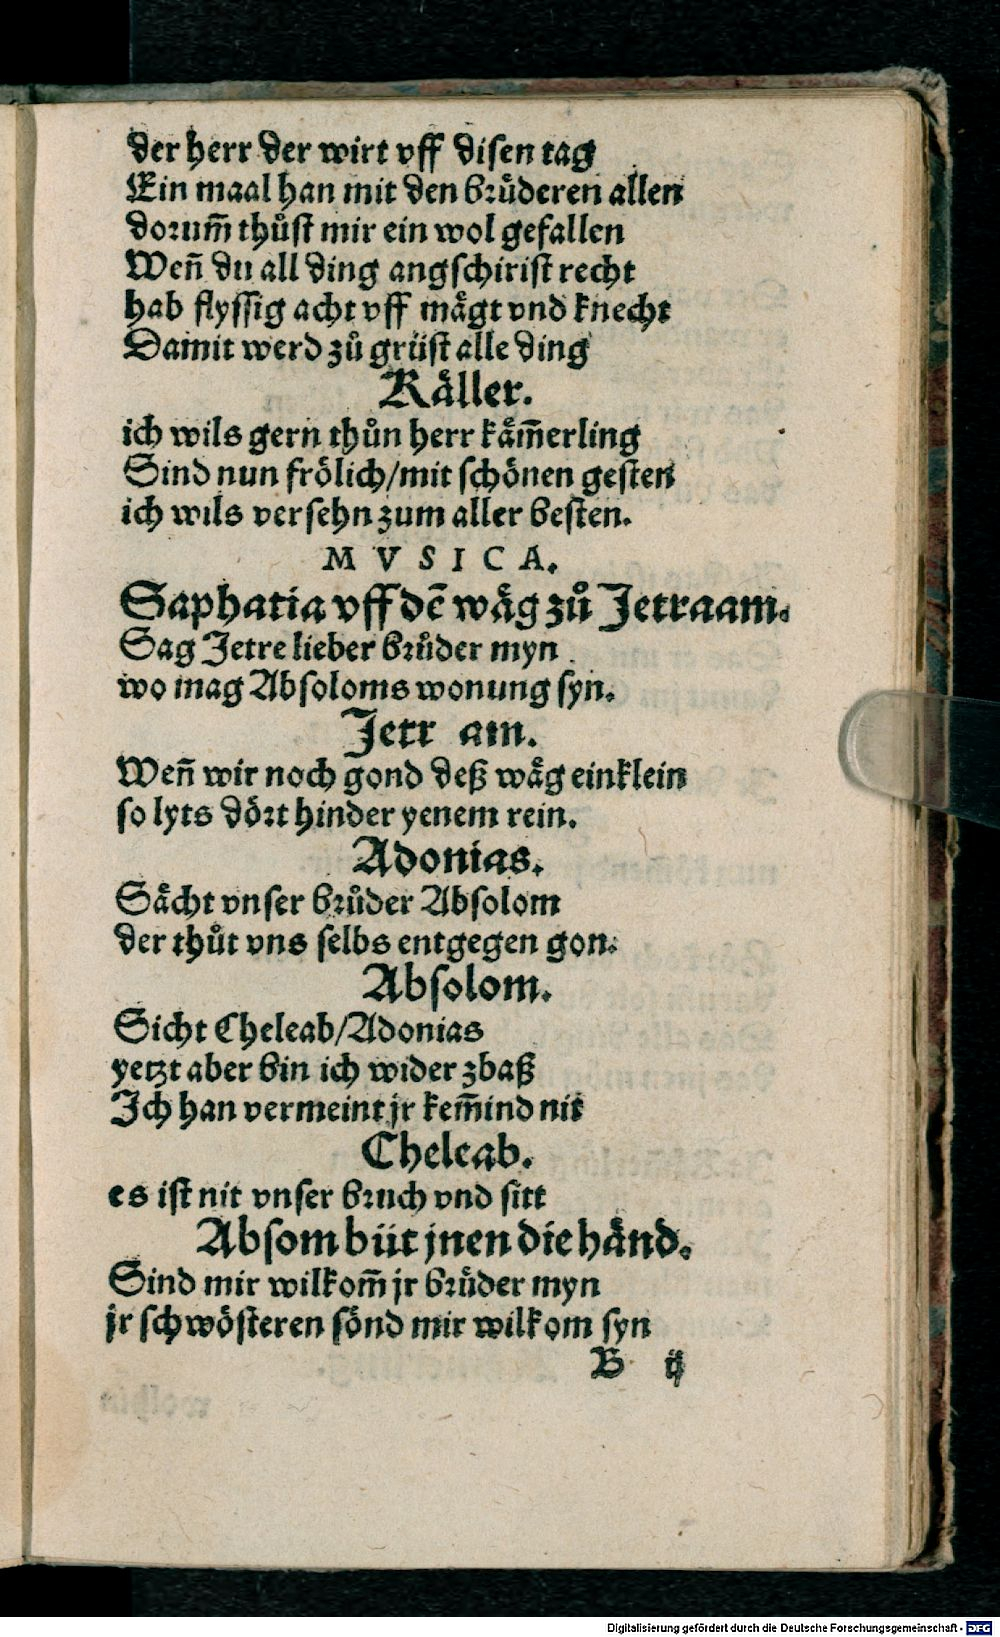 der herr der wirt vff disen tag
Ein maal han mit den bruͤderen allen
dorum̄ thuͦst mir ein wol gefallen
Wen̄ du all ding angschirist recht
hab flyssig acht vff maͤgt vnd knecht
Damit werd zuͦ gruͤst alle ding
Kaͤller.
ich wils gern thuͦn herr kaͤm̄erling
Sind nun froͤlich/mit schoͤnen gesten
ich wils versehn zum aller besten.
MVSICA.
Saphatia vff dē waͤg zuͦ Jetraam.
Sag Jetre lieber bruͦder myn
wo mag Absoloms wonung syn.
Jetr am.
Wen̄ wir noch gond deß waͤg einklein
so lyts doͤrt hinder yenem rein.
Adonias.
Saͤcht vnser bruͦder Absolom
der thuͦt vns selbs entgegen gon.
Absolom.
Sicht Cheleab/Adonias
yetzt aber bin ich wider zbaß
Ich han vermeint jr kem̄ind nit
Cheleab.
es ist nit vnser bruch vnd sitt
Absom buͤt jnen die haͤnd.
Sind mir wilkom̄ jr bruͤder myn
jr schwoͤsteren soͤnd mir wilkom syn
B ij
Digitalisierung gefördert durch die Deutsche Forschungsgemeinschaft - DFG